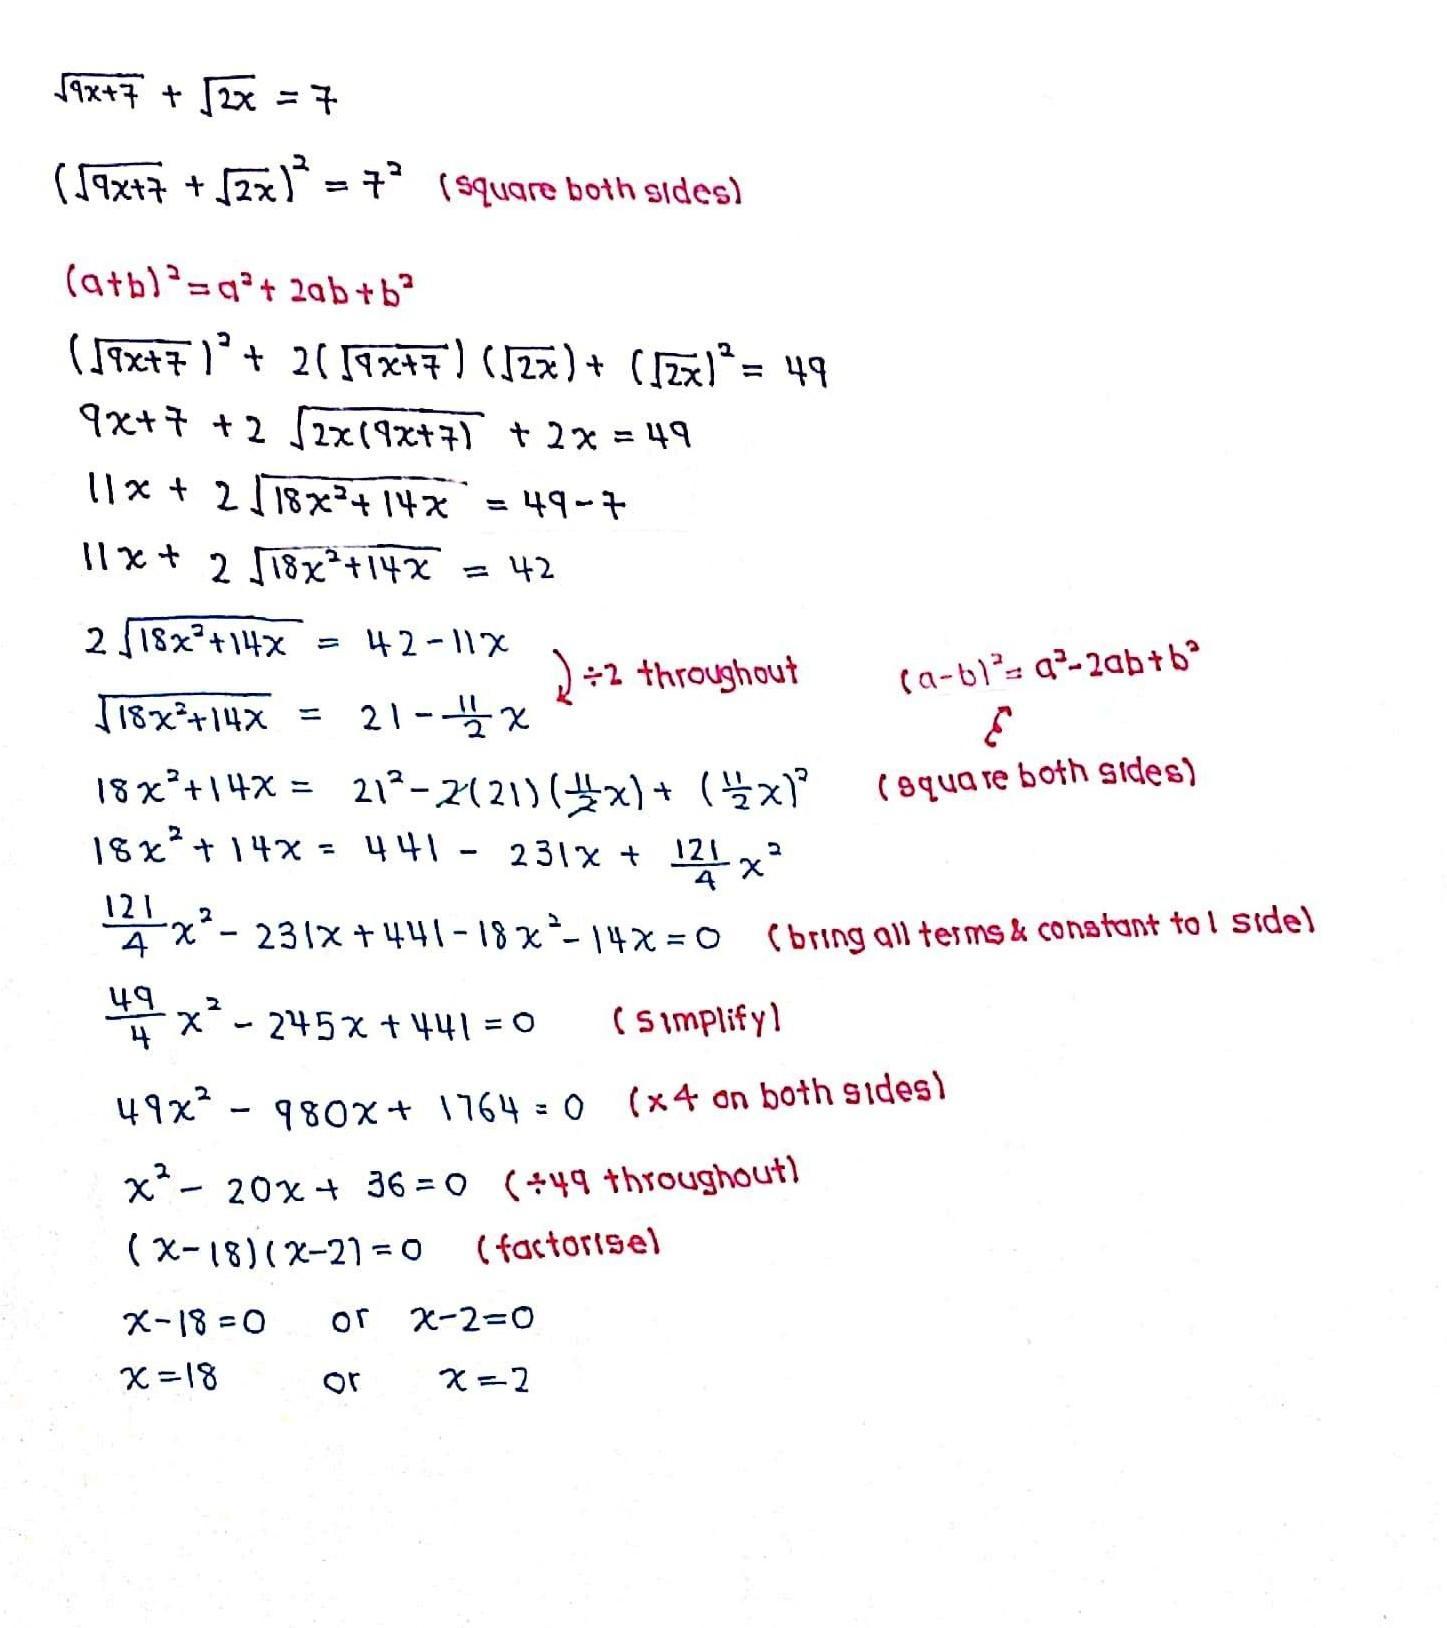 √(9x+7) + √(2x) = 7
(√(9x+7) + √(2x))² = 7² (square both sides)
(a+b)² = a² + 2ab + b²
(√(9x+7))² + 2(√(9x+7))(√(2x)) + (√(2x))² = 49
9x+7 + 2√(2x(9x+7)) + 2x = 49
11x + 2√(18x²+14x) = 49-7
11x + 2√(18x²+14x) = 42
2√(18x²+14x) = 42-11x
÷2 throughout
(a-b)² = a²-2ab+b²
√(18x²+14x) = 21 - 11/2 x
18x²+14x = 21² - 2(21)(11/2 x) + (11/2 x)² (square both sides)
18x² + 14x = 441 - 231x + 121/4 x²
121/4 x² - 231x + 441 - 18x² - 14x = 0 (bring all terms & constant to 1 side)
49/4 x² - 245x + 441 = 0 (simplify)
49x² - 980x + 1764 = 0 (x4 on both sides)
x² - 20x + 36 = 0 (÷49 throughout)
(x-18)(x-2) = 0 (factorise)
x-18 = 0 or x-2 = 0
x = 18 or x = 2